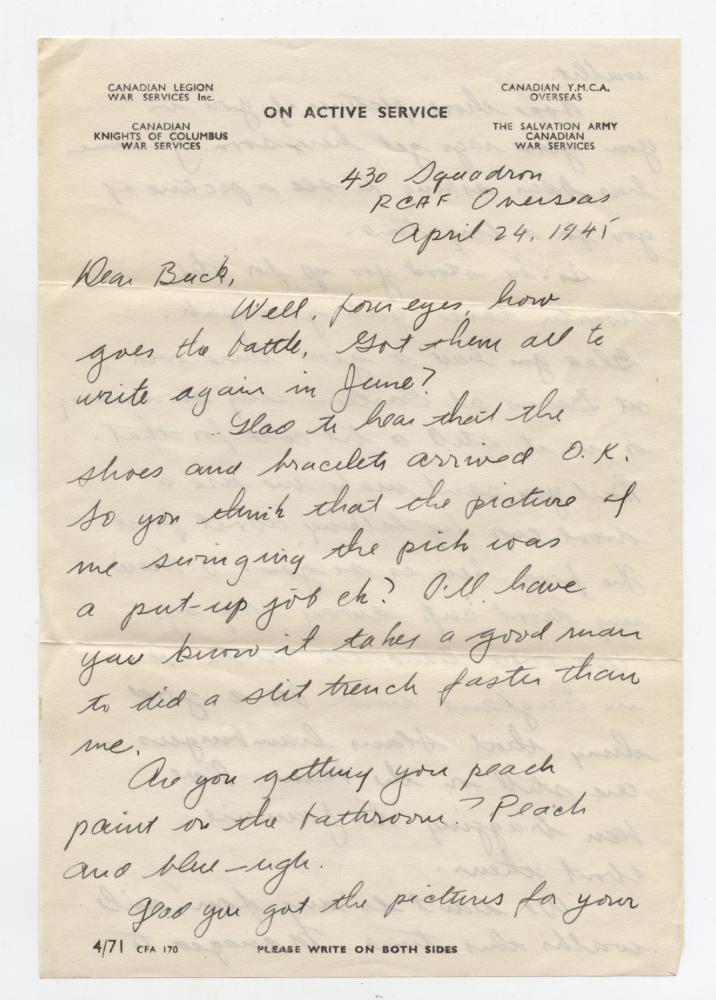 CANADIAN LEGION
WAR SERVICES Inc.
CANADIAN
KNIGHTS OF COLUMBUS
WAR SERVICES
ON ACTIVE SERVICE
CANADIAN Y.M.C.A.
OVERSEAS
THE SALVATION ARMY
CANADIAN
WAR SERVICES
430 Squadron
RCAF Overseas
April 24, 1945
Dear Buck,
Well, four eyes, how
goes the battle. Got them all to
write again in June?
Glad to hear that the
shoes and bracelets arrived O.K.
So you think that the picture of
me swinging the pick was
a put-up job eh? I'll have
you know it takes a good man
to did a slit trench faster than
me.
Are you getting you peach
paint on the bathroom? Peach
and blue - ugh.
Glad you got the pictures for your
4/71 CFA 170 PLEASE WRITE ON BOTH SIDES